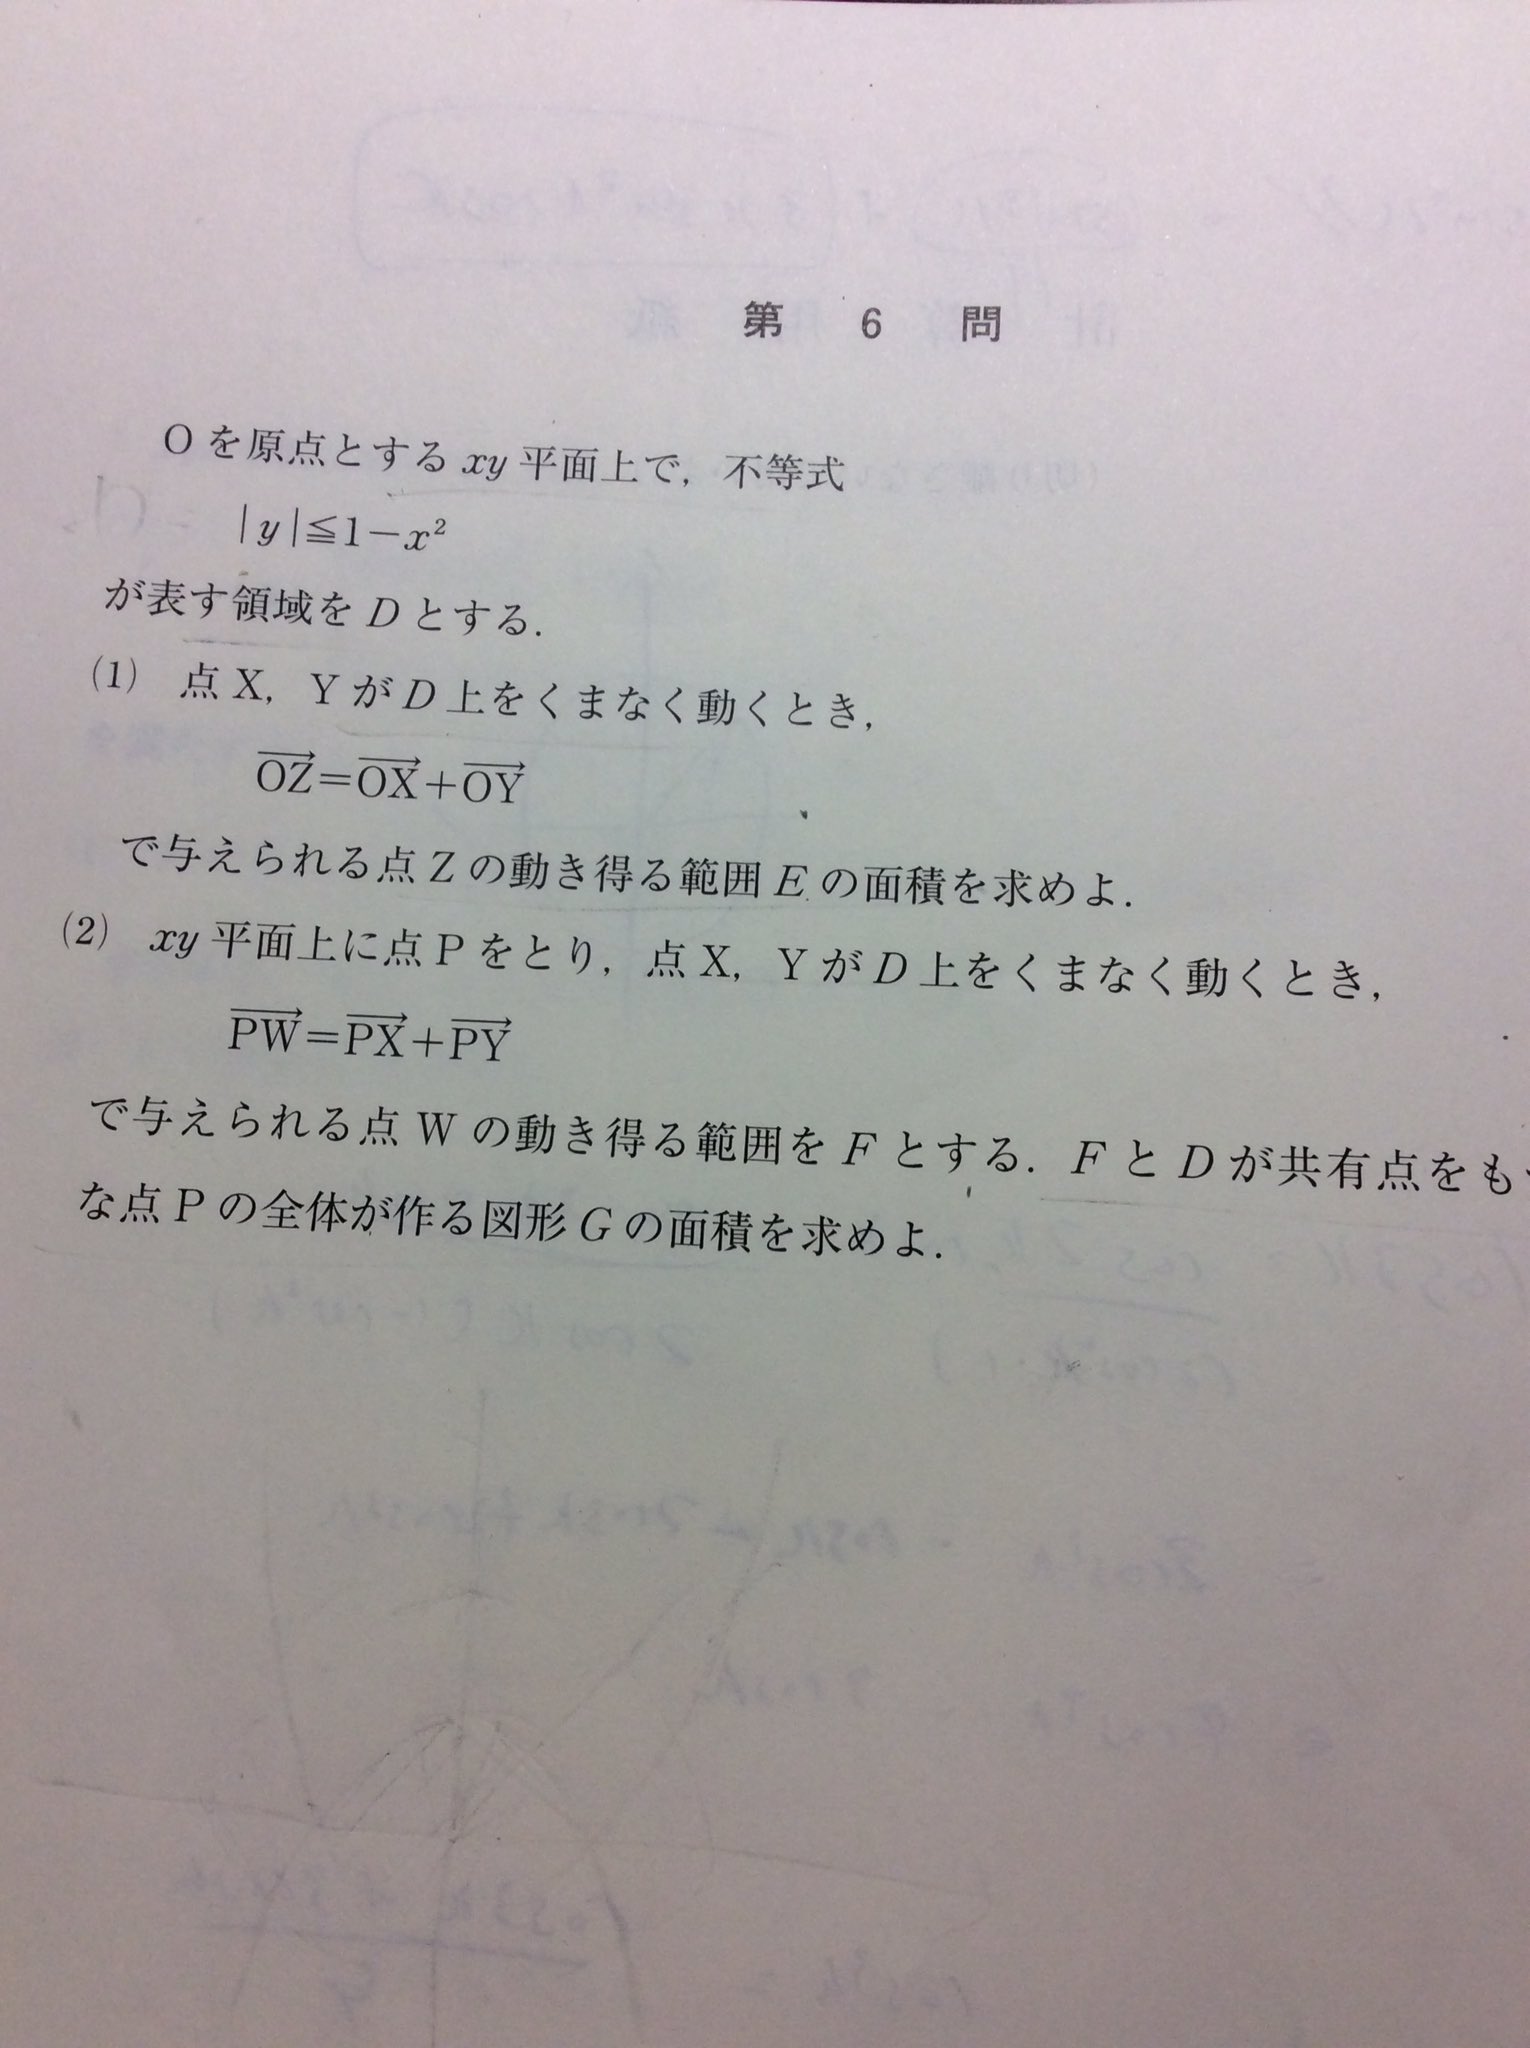 第 6 問
Oを原点とするxy平面上で，不等式
|y|≦1−x²
が表す領域をDとする．
(1) 点X，YがD上をくまなく動くとき，
OZ→=OX→+OY→
で与えられる点Zの動き得る範囲Eの面積を求めよ．
(2) xy平面上に点Pをとり，点X，YがD上をくまなく動くとき，
PW→=PX→+PY→
で与えられる点Wの動き得る範囲をFとする．FとDが共有点をも
な点Pの全体が作る図形Gの面積を求めよ．